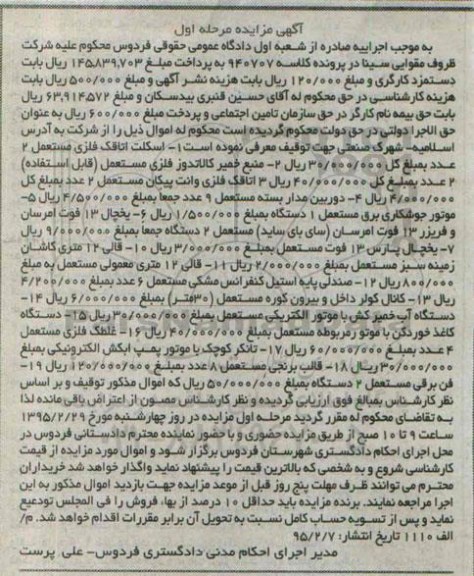 آگهی مزایده مرحله اول
به موجب اجراییه صادره از شعبه اول دادگاه عمومی حقوقی فردوس محکوم علیه شرکت
ظروف مقوایی سینا در پرونده کلاسه ۹۴۰۷۰۷ به پرداخت مبلغ ۱۴۵۸۳۹,۷۰۳ ریال بابت
دستمزد کارگری و مبلغ ۱۲۰/۰۰۰ ریال بابت هزینه نشر آگهی و مبلغ ۵۰۰/۰۰۰ ریال بابت
هزینه کارشناسی در حق محکوم له آقای حسین قنبری بیدسکان و مبلغ ۶۳,۹۱۴۵۷۲ ریال
بابت حق بیمه نام کارگر در حق سازمان تامین اجتماعی و پرداخت مبلغ ۶۰۰/۰۰۰ ریال به عنوان
حق الاجرا دولتی در حق دولت محکوم گردیده است محکوم له اموال ذیل را از شرکت به آدرس
اسلامیه- شهرک صنعتی جهت توقیف معرفی نموده است ۱- اسکلت اتاقک فلزی مستعمل ۲
عدد بمبلغ کل ۳۰/۰۰۰/۰۰۰ ریال ۲- منبع خمیر کالاندوز فلزی مستعمل (قابل استفاده)
۲ عدد بمبلغ کل ۴۰/۰۰۰/۰۰۰ ریال ۳ اتاقک فلزی وانت پیکان مستعمل ۲ عدد بمبلغ کل
۴/۰۰۰/۰۰۰ ریال ۴- دوربین مدار بسته مستعمل ۹ عدد جمعا بمبلغ ۴/۵۰۰/۰۰۰ ریال ۵-
موتور جوشکاری برق مستعمل ۱ دستگاه بمبلغ ۱/۵۰۰/۰۰۰ ریال ۶- یخچال ۱۳ فوت امرسان
و فریزر ۱۳ فوت امرسان (سای بای ساید) مستعمل ۲ دستگاه جمعا بمبلغ ۹/۰۰۰/۰۰۰ ریال
۷- یخچال پارس ۱۳ فوت مستعمل بمبلغ ۳/۰۰۰/۰۰۰ ریال ۱۰- قالی ۱۲ متری کاشان
زمینه سبز مستعمل بمبلغ ۲/۰۰۰/۰۰۰ ریال ۱۱- قالی ۱۲ متری معمولی مستعمل به مبلغ
۸۰۰/۰۰۰ ریال ۱۲- صندلی پایه استیل کنفرانس مشکی مستعمل ۶ عدد بمبلغ ۴/۲۰۰/۰۰۰
ریال ۱۳- کانال کولر داخل و بیرون کوره مستعمل (۳۰متر) بمبلغ ۶/۰۰۰/۰۰۰ ریال ۱۴-
دستگاه آب خمیر کش با موتور الکتریکی مستعمل بمبلغ ۳۰/۰۰۰/۰۰۰ ریال ۲۵- دستگاه
کاغذ خوردکن با موتور مربوطه مستعمل بمبلغ ۴۰/۰۰۰/۰۰۰ ریال ۱۶- غلطک فلزی مستعمل
۴ عدد بمبلغ ۶۰/۰۰۰/۰۰۰ ریال ۱۷- تانکر کوچک با موتور پمپ ابکش الکترونیکی بمبلغ
۳۰/۰۰۰/۰۰۰ ریال ۱۸- قالب برنجی مستعمل ۸ عدد بمبلغ ۱۲۰/۰۰۰/۰۰۰ ریال ۱۹-
فن برقی مستعمل ۲ دستگاه بمبلغ ۵۰/۰۰۰/۰۰۰ ریال که اموال مذکور توقیف و بر اساس
نظر کارشناس بمبالغ فوق ارزیابی گردیده و نظر کارشناس مصون از اعتراض باقی مانده لذا
به تقاضای محکوم له مقرر گردید مرحله اول مزایده در روز چهارشنبه مورخ ۱۳۹۵/۲/۲۹
ساعت ۹ تا ۱۰ صبح از طریق مزایده حضوری و با حضور نماینده محترم دادستانی فردوس در
محل اجرای احکام دادگستری شهرستان فردوس برگزار شود و اموال مورد مزایده از قیمت
کارشناسی شروع و به شخصی که بالاترین قیمت را پیشنهاد نماید واگذار خواهد شد خریداران
محترم می توانند ظرف مهلت پنج روز قبل از موعد مزایده جهت بازدید اموال مذکور به این
اجرا مراجعه نمایند. برنده مزایده باید حداقل ۱۰ درصد از بها، فروش را فی المجلس تودعیع
نماید و پس از تسویه حساب کامل نسبت به تحویل آن برابر مقررات اقدام خواهد شد. م/
الف ۱۱۱۰ تاریخ انتشار: ۹۵/۲/۷
مدیر اجرای احکام مدنی دادگستری فردوس- علی پرست